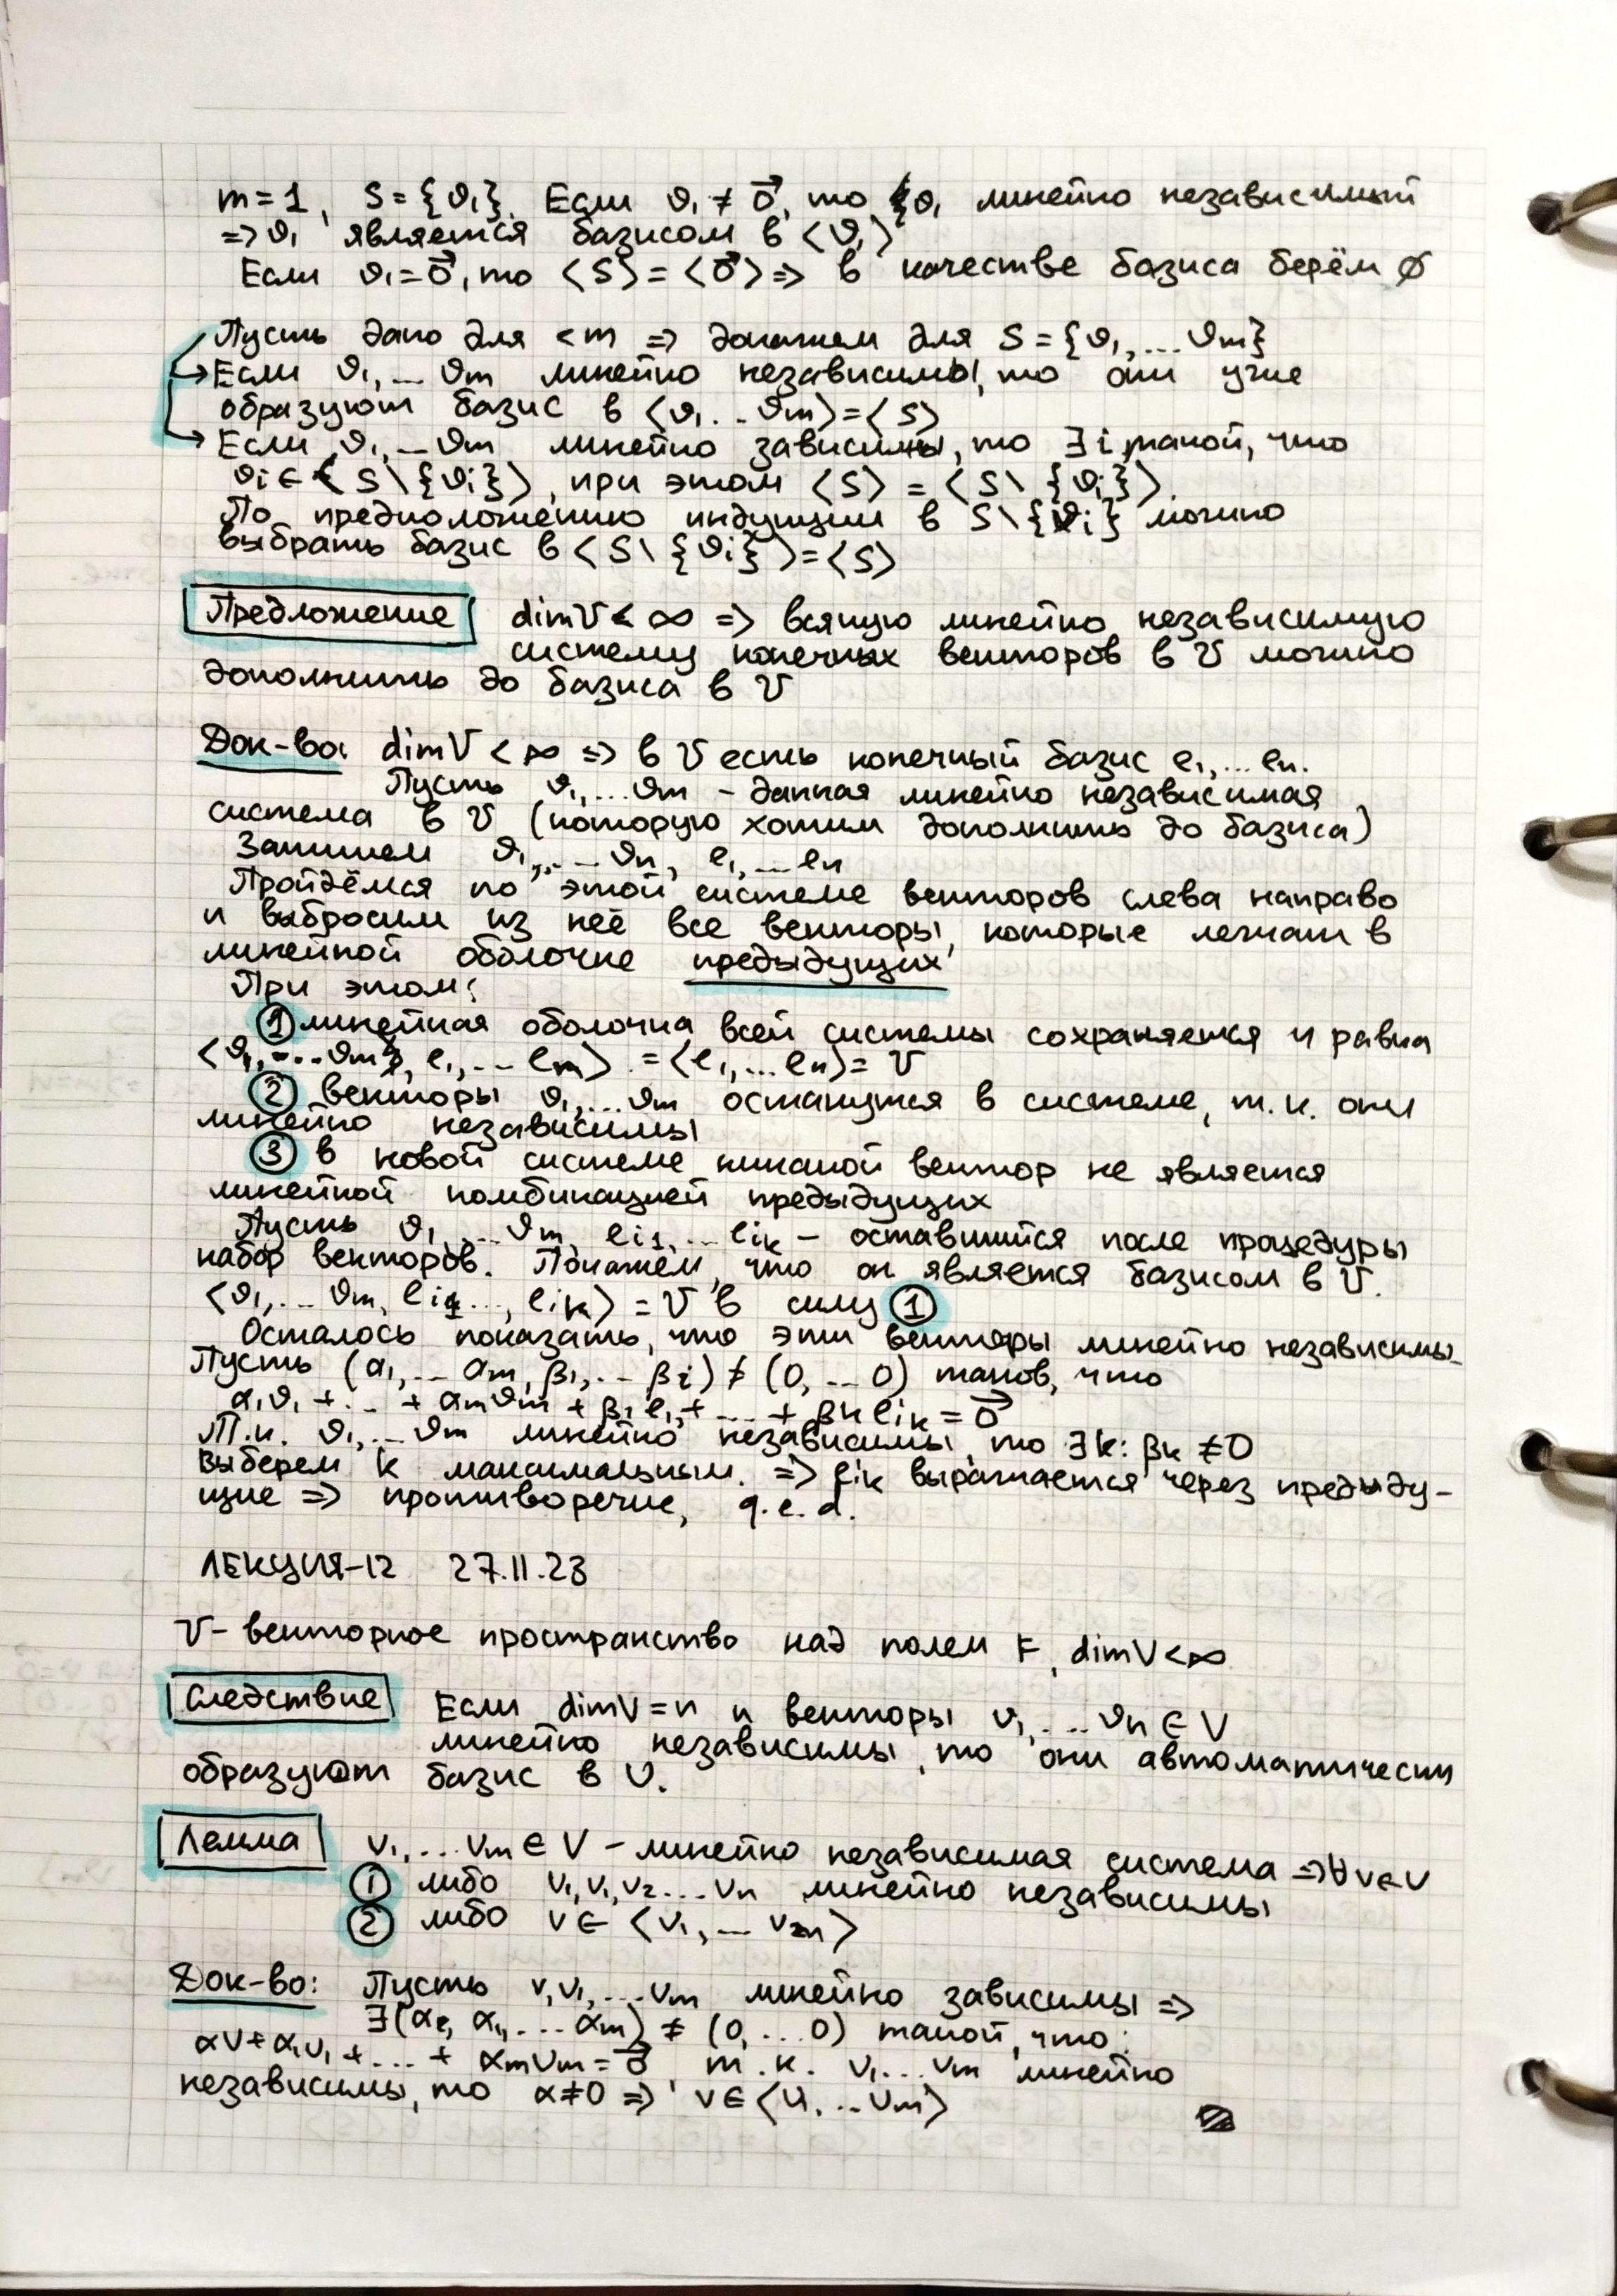 m=1, S={v₁}. Если v₁ ≠ 0⃗, то v₁ линейно независимый
=> v₁ является базисом в ⟨v₁⟩
Если v₁=0⃗, то ⟨S⟩=⟨0⃗⟩ => в качестве базиса берём ∅
Пусть дано для <m => докажем для S={v₁,...vₘ}
Если v₁,...vₘ линейно независимы, то они уже
образуют базис в ⟨v₁...vₘ⟩=⟨S⟩
Если v₁,...vₘ линейно зависимы, то ∃i такой, что
vᵢ∈⟨S\{vᵢ}⟩, при этом ⟨S⟩=⟨S\{vᵢ}⟩.
По предположению индукции в S\{vᵢ} можно
выбрать базис в ⟨S\{vᵢ}⟩=⟨S⟩
Предложение dimV<∞ => всякую линейно независимую
систему конечных векторов в V можно
дополнить до базиса в V
Док-во: dimV<∞ => в V есть конечный базис e₁,...eₙ.
Пусть v₁,...vₘ - данная линейно независимая
система в V (которую хотим дополнить до базиса)
Запишем v₁,...vₙ, e₁,...eₙ
Пройдёмся по этой системе векторов слева направо
и выбросим из неё все векторы, которые лежат в
линейной оболочке предыдущих
При этом:
① линейная оболочка всей системы сохраняется и равна
⟨v₁,...vₘ, e₁,...eₘ⟩=⟨e₁,...eₙ⟩=V
② векторы v₁,...vₘ останутся в системе, т.к. они
линейно независимы
③ в новой системе никакой вектор не является
линейной комбинацией предыдущих
Пусть v₁,...vₘ, eᵢ₁,...eᵢₖ - оставшийся после процедуры
набор векторов. Покажем, что он является базисом в V.
⟨v₁,...vₘ, eᵢ₁...,eᵢₖ⟩=V в силу ①
Осталось показать, что эти векторы линейно независимы
Пусть (α₁,...αₘ, β₁,...βᵢ)≠(0,...0) таков, что
α₁v₁+...+αₘvₘ+β₁e₁,+...+βₖeᵢₖ=0⃗
Т.к. v₁,...vₘ линейно независимы, то ∃k: βₖ≠0
Выберем k максимальным. => eᵢₖ выражается через предыду-
щие => противоречие, q.e.d.
ЛЕКЦИЯ-12 27.11.23
V- векторное пространство над полем F, dimV<∞
Следствие Если dimV=n и векторы v₁,...vₙ∈V
линейно независимы, то они автоматически
образуют базис в V.
Лемма v₁,...vₘ∈V - линейно независимая система =>∀v∈V
① либо v,v₁,v₂...vₙ линейно независимы
② либо v∈⟨v₁,...vₘ⟩
Док-во: Пусть v,v₁,...vₘ линейно зависимы =>
∃(α, α₁,...αₘ)≠(0,...0) такой, что:
αv+α₁v₁+...+αₘvₘ=0⃗, т.к. v₁...vₘ линейно
независимы, то α≠0 => v∈⟨v₁,...vₘ⟩